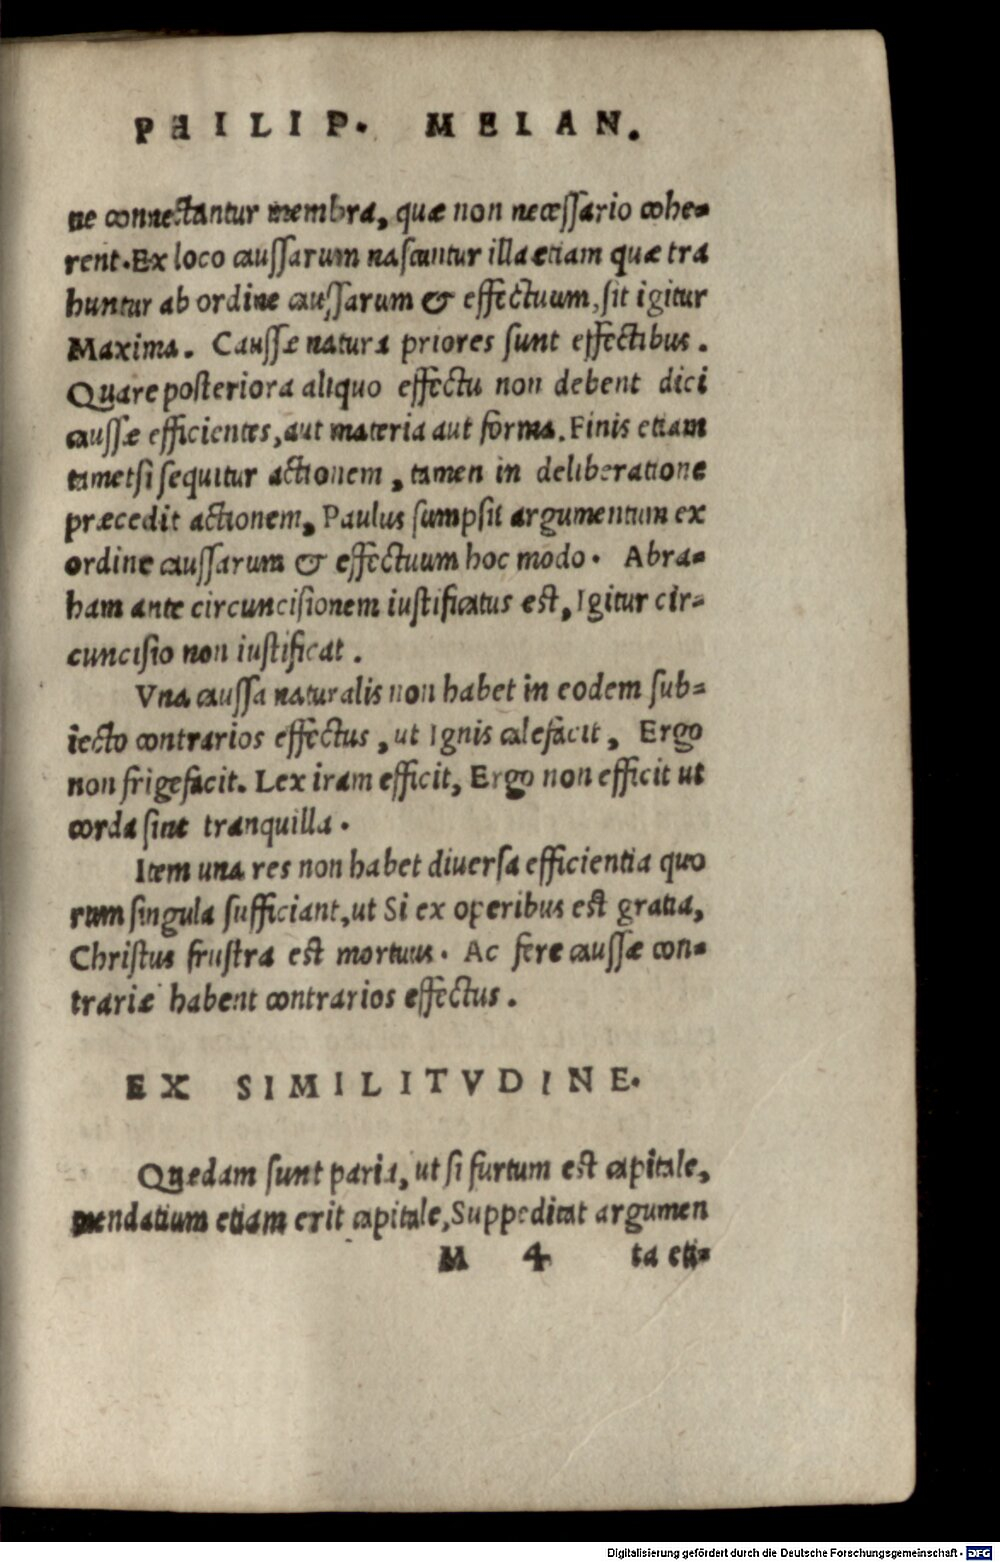 PHILIP. MELAN.
ne connectantur membra, quæ non necessario cohe-
rent. Ex loco caussarum nascuntur illa etiam quæ tra
huntur ab ordine caussarum & effectuum, sit igitur
Maxima. Caussæ natura priores sunt effectibus.
Quare posteriora aliquo effectu non debent dici
caussæ efficientes, aut materia aut forma. Finis etiam
tametsi sequitur actionem, tamen in deliberatione
præcedit actionem, Paulus sumpsit argumentum ex
ordine caussarum & effectuum hoc modo. Abra-
ham ante circuncisionem iustificatus est, Igitur cir-
cuncisio non iustificat.
Vna caussa naturalis non habet in eodem sub-
iecto contrarios effectus, ut Ignis calefacit, Ergo
non frigefacit. Lex iram efficit, Ergo non efficit ut
corda sint tranquilla.
Item una res non habet diuersa efficientia quo
rum singula sufficiant, ut Si ex operibus est gratia,
Christus frustra est mortuus. Ac fere caussæ con-
trariæ habent contrarios effectus.
EX SIMILITVDINE.
Quædam sunt paria, ut si furtum est capitale,
mendatium etiam erit capitale, Suppeditat argumen
M 4 ta eti-
Digitalisierung gefördert durch die Deutsche Forschungsgemeinschaft - DFG